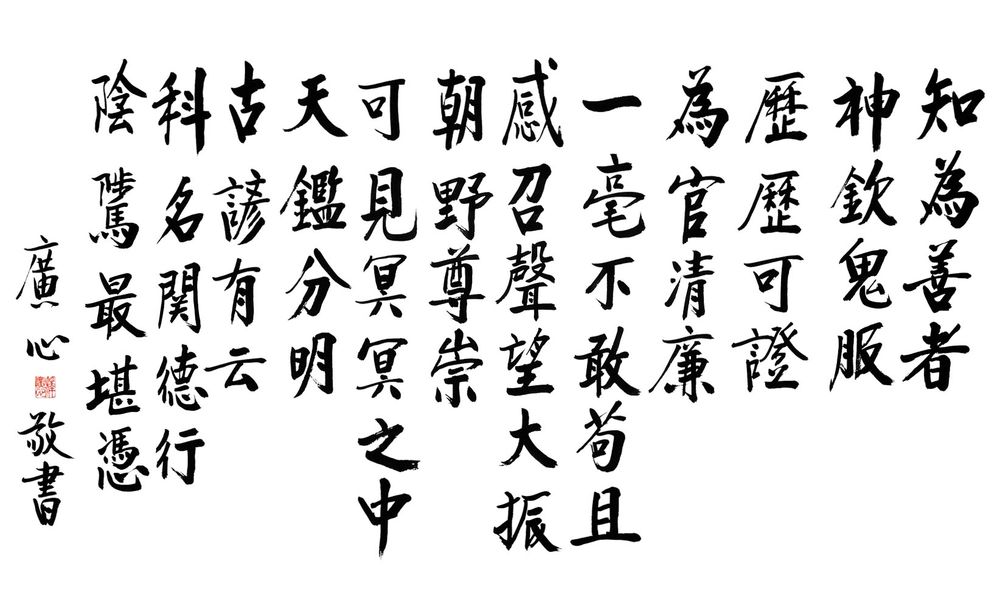 知為善者
神欽鬼服
歷歷可證
為官清廉
一毫不敢苟且
感召聲望大振
朝野尊崇
可見冥冥之中
天鑑分明
古諺有云
科名關德行
陰騭最堪憑
廣心
敬書